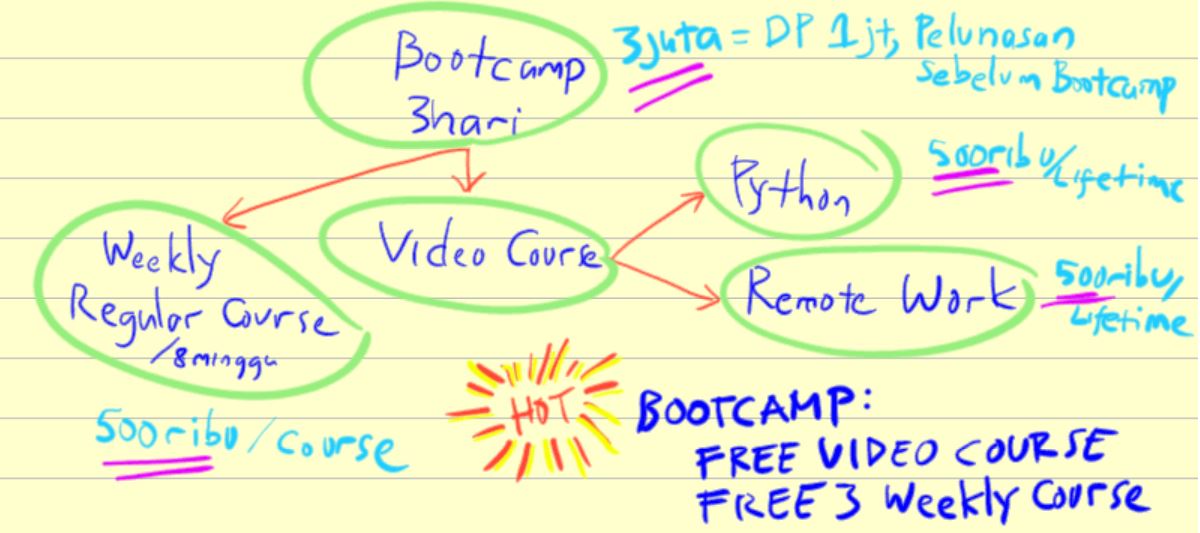 Bootcamp
3hari
3juta = DP 1jt, Pelunasan
Sebelum Bootcamp
Weekly
Regular Course
/8minggu
500ribu/Course
Video Course
Python
500ribu/Lifetime
Remote Work
500ribu/
Lifetime
HOT
BOOTCAMP:
FREE VIDEO COURSE
FREE 3 Weekly Course